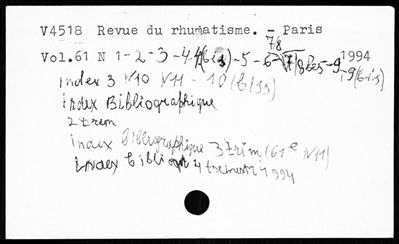 V4518 Revue du rhumatisme. - Paris
7/8
Vol.61 N 1-2-3-4-4(bis)-5-6-7/8bis-9 1994
index 3 N10 N11 - 10 (biss) -9(bis)
index Bibliographique
2 trem
index Bibliographique 3 trim (61e N11)
index bibliogr 4 trimestr 1994